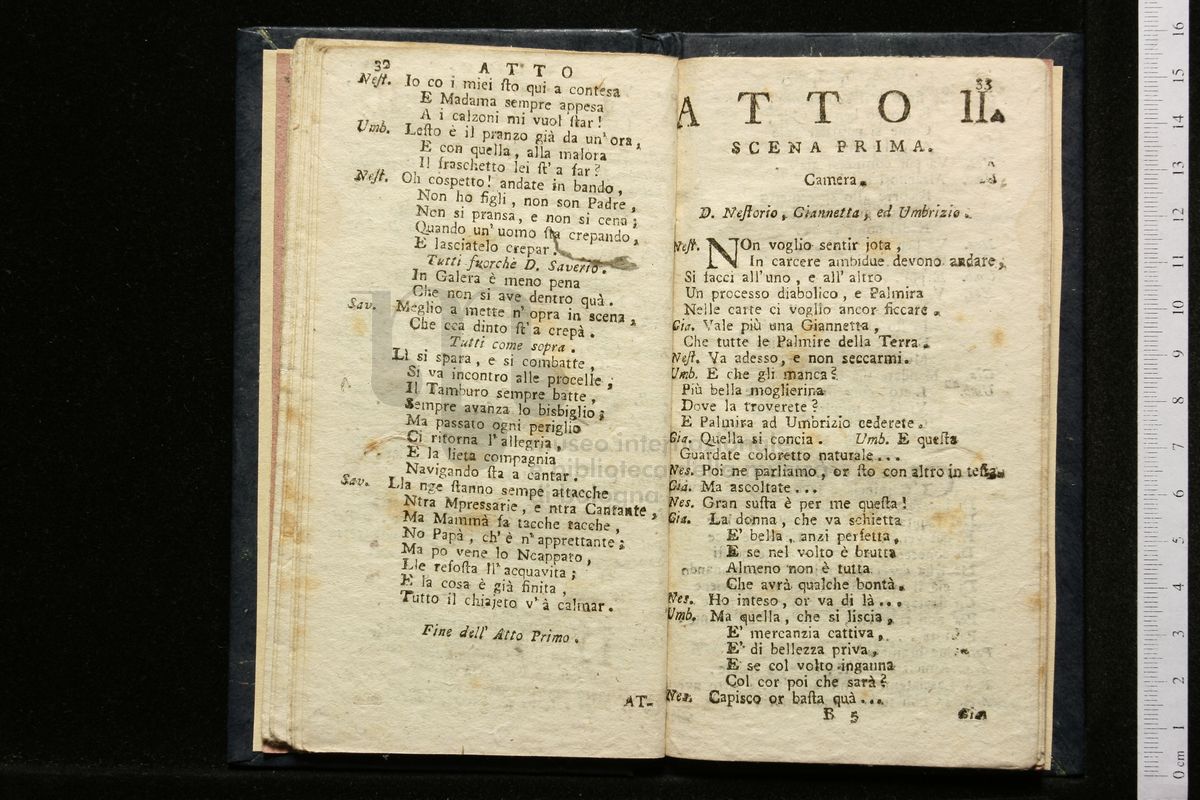 32
A T T O
Nest. Io co i miei sto qui a contesa
E Madama sempre appesa
A i calzoni mi vuol star!
Umb. Lesto è il pranzo già da un' ora,
E con quella, alla malora
Il fraschetto lei st' a far?
Nest. Oh cospetto! andate in bando,
Non ho figli, non son Padre,
Non si pransa, e non si cena;
Quando un' uomo sta crepando,
E lasciatelo crepar.
Tutti fuorchè D. Saverio.
In Galera è meno pena
Che non si ave dentro quà.
Sav. Meglio a mette n' opra in scena,
Che cca dinto st' a crepà.
Tutti come sopra.
Lì si spara, e si combatte,
Si va incontro alle procelle;
Il Tamburo sempre batte,
Sempre avanza lo bisbiglio;
Ma passato ogni periglio
Ci ritorna l' allegria,
E la lieta compagnia
Navigando sta a cantar.
Sav. Lla nge stanno sempe attacche
Ntra Mpressarie, e ntra Cantante,
Ma Mammà fa tacche tacche,
No Papà, ch' è n' apprettante;
Ma po vene lo Ncappato,
Lle refosta ll' acquavita;
E la cosa è già finita,
Tutto il chiajeto v' à calmar.
Fine dell' Atto Primo.
AT-
33
ATTO II.
SCENA PRIMA.
Camera.
D. Nestorio, Giannetta, ed Umbrizio.
Nest. NOn voglio sentir jota,
In carcere ambidue devono andare,
Si facci all' uno, e all' altro
Un processo diabolico, e Palmira
Nelle carte ci voglio ancor ficcare.
Gia. Vale più una Giannetta,
Che tutte le Palmire della Terra.
Nest. Va adesso, e non seccarmi.
Umb. E che gli manca?
Più bella moglierina
Dove la troverete?
E Palmira ad Umbrizio cederete.
Gia. Quella si concia. Umb. E questa
Guardate coloretto naturale...
Nes. Poi ne parliamo, or sto con altro in testa.
Gia. Ma ascoltate...
Nes. Gran susta è per me questa!
Gia. La donna, che va schietta
E' bella, anzi perfetta,
E se nel volto è brutta
Almeno non è tutta
Che avrà qualche bontà.
Nes. Ho inteso, or va di là...
Umb. Ma quella, che si liscia,
E' mercanzia cattiva,
E' di bellezza priva,
E se col volto inganna
Col cor poi che sarà?
Nes. Capisco or basta quà...
B 5
Gia